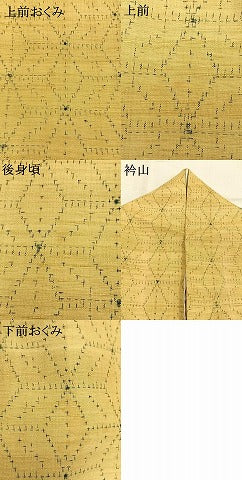 上前おくみ
上前
後身頃
衿山
下前おくみ